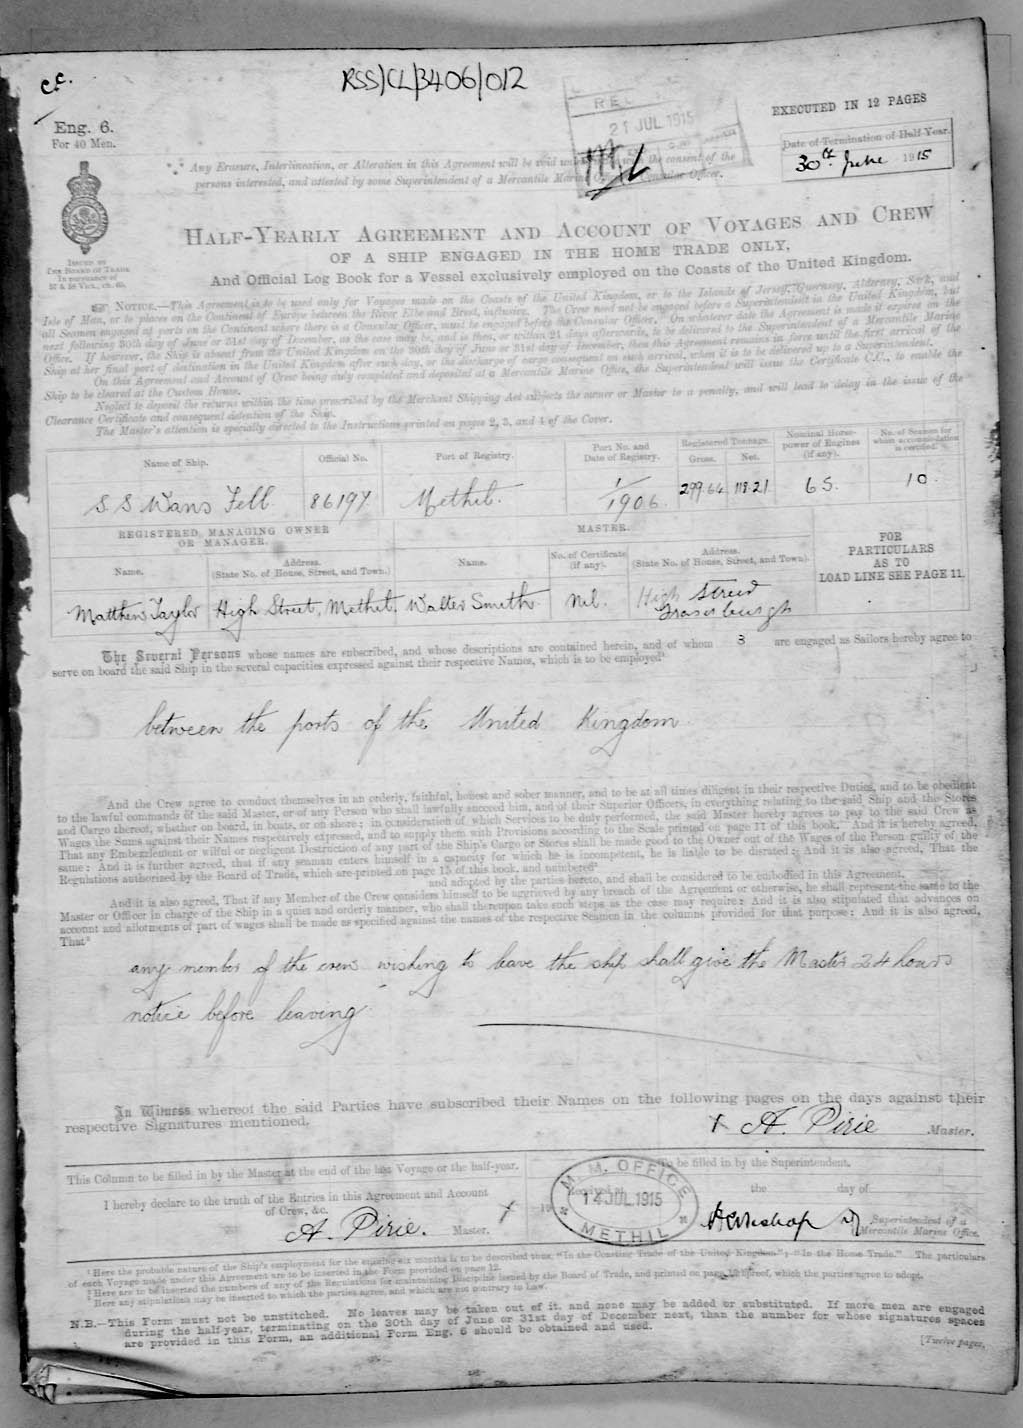 c.c.
RSS/CL/3406/012
EXECUTED IN 12 PAGES
Eng. 6.
For 40 Men.
REC
21 JUL 1915
Date of Termination of Half-Year.
30th June 1915
Any Erasure, Interlineation, or Alteration in this Agreement will be void unless with the consent of the
persons interested, and attested by some Superintendent of a Mercantile Marine Officer.
HALF-YEARLY AGREEMENT AND ACCOUNT OF VOYAGES AND CREW
OF A SHIP ENGAGED IN THE HOME TRADE ONLY,
And Official Log Book for a Vessel exclusively employed on the Coasts of the United Kingdom.
ISSUED BY
THE BOARD OF TRADE
IN PURSUANCE OF
57 & 58 VICT., ch. 60.
NOTICE.—This Agreement is to be used only for Voyages made on the Coasts of the United Kingdom, or to the Islands of Jersey, Guernsey, Alderney, Sark, and
Isle of Man, or to places on the Continent of Europe between the River Elbe and Brest, inclusive. The Crew need not be engaged before a Superintendent in the United Kingdom, but
all Seamen engaged at ports on the Continent where there is a Consular Officer, must be engaged before the Consular Officer. On whatever date the Agreement is made it expires on the
next following 30th day of June or 31st day of December, as the case may be, and is then, or within 21 days afterwards, to be delivered to the Superintendent of a Mercantile Marine
Office. If however, the Ship is absent from the United Kingdom on the 30th day of June or 31st day of December, then this Agreement remains in force until the first arrival of the
Ship at her final port of destination in the United Kingdom after such day, or the discharge of cargo consequent on such arrival, when it is to be delivered up to a Superintendent.
On this Agreement and Account of Crew being duly completed and deposited at a Mercantile Marine Office, the Superintendent will issue the Certificate C.C., to enable the
Ship to be cleared at the Custom House.
Neglect to deposit the returns within the time prescribed by the Merchant Shipping Act subjects the owner or Master to a penalty, and will lead to delay in the issue of the
Clearance Certificate and consequent detention of the Ship.
The Master's attention is specially directed to the Instructions printed on pages 2, 3, and 4 of the Cover.
Name of Ship. Official No. Port of Registry. Port No. and Date of Registry. Registered Tonnage. Gross. Net. Nominal Horse-power of Engines (if any). No. of Seamen for whom accommodation is certified.
S S Wans Fell 86197 Methil. 1/1906 299.64 118.21 65. 10
REGISTERED MANAGING OWNER OR MANAGER. MASTER.
Name. Address. (State No. of House, Street, and Town). Name. No. of Certificate (if any). Address. (State No. of House, Street, and Town).
FOR PARTICULARS AS TO LOAD LINE SEE PAGE 11.
Matthew Taylor High Street, Methil. Walter Smith Nil. High Street Fraserburgh
The Several Persons whose names are subscribed, and whose descriptions are contained herein, and of whom 3 are engaged as Sailors hereby agree to
serve on board the said Ship in the several capacities expressed against their respective Names, which is to be employed¹
between the ports of the United Kingdom
And the Crew agree to conduct themselves in an orderly, faithful, honest and sober manner, and to be at all times diligent in their respective Duties, and to be obedient
to the lawful commands of the said Master, or of any Person who shall lawfully succeed him, and of their Superior Officers, in everything relating to the said Ship and the Stores
and Cargo thereof, whether on board, in boats, or on shore; in consideration of which Services to be duly performed, the said Master hereby agrees to pay to the said Crew as
Wages the Sums against their Names respectively expressed, and to supply them with Provisions according to the Scale printed on page 11 of this book. And it is hereby agreed,
That any Embezzlement or wilful or negligent Destruction of any part of the Ship's Cargo or Stores shall be made good to the Owner out of the Wages of the Person guilty of the
same: And it is further agreed, that if any seaman enters himself in a capacity for which he is incompetent, he is liable to be disrated: And it is also agreed, That the
Regulations authorized by the Board of Trade, which are printed on page 15 of this book, and numbered²
and adopted by the parties hereto, and shall be considered to be embodied in this Agreement.
And it is also agreed, That if any Member of the Crew considers himself to be aggrieved by any breach of the Agreement or otherwise, he shall represent the same to the
Master or Officer in charge of the Ship in a quiet and orderly manner, who shall thereupon take such steps as the case may require: And it is also stipulated that advances on
account and allotments of part of wages shall be made as specified against the names of the respective Seamen in the columns provided for that purpose: And it is also agreed,
That³
any member of the crew wishing to leave the ship shall give the Master 24 hours
notice before leaving
In Witness whereof the said Parties have subscribed their Names on the following pages on the days against their
respective Signatures mentioned.
x A. Pirie Master.
This Column to be filled in by the Master at the end of the last Voyage or the half-year.
To be filled in by the Superintendent.
I hereby declare to the truth of the Entries in this Agreement and Account
of Crew, &c.
A. Pirie. Master. x
Received at the day of
19
M. M. OFFICE
14 JUL 1915
METHIL
Superintendent of a
Mercantile Marine Office.
¹ Here the probable nature of the Ship's employment for the ensuing six months is to be described thus, "In the Coasting Trade of the United Kingdom"; "In the Home Trade." The particulars
of each Voyage made under this Agreement are to be inserted in the Form provided on page 12.
² Here are to be inserted the numbers of any of the Regulations for maintaining Discipline issued by the Board of Trade, and printed on page hereof, which the parties agree to adopt.
³ Here any stipulations may be inserted to which the parties agree, and which are not contrary to Law.
N.B.—This Form must not be unstitched. No leaves may be taken out of it, and none may be added or substituted. If more men are engaged
during the half-year, terminating on the 30th day of June or 31st day of December next, than the number for whose signatures spaces
are provided in this Form, an additional Form Eng. 6 should be obtained and used.
[Twelve pages.